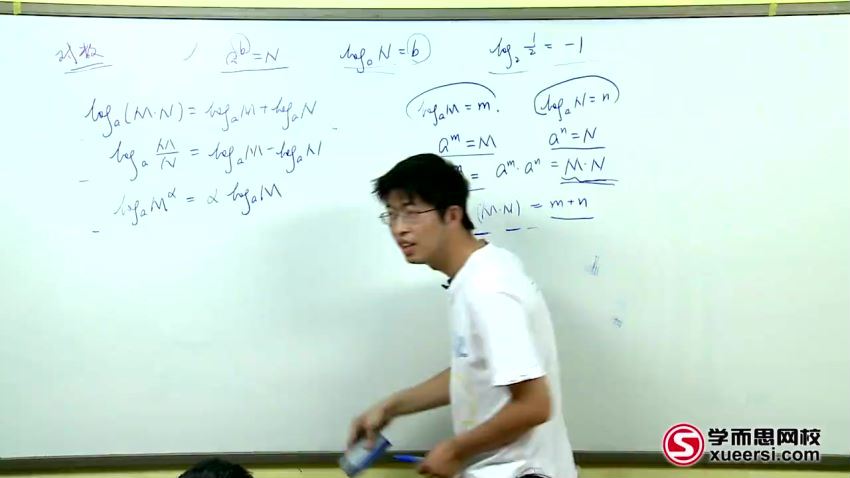 对数 a^b = N log_a N = b log_2 1/2 = -1
log_a(M·N) = log_a M + log_a N
log_a M/N = log_a M - log_a N
log_a M^α = α log_a M
log_a M = m. log_a N = n
a^m = M a^n = N
= a^m · a^n = M·N
(M·N) = m+n
学而思网校
xueersi.com